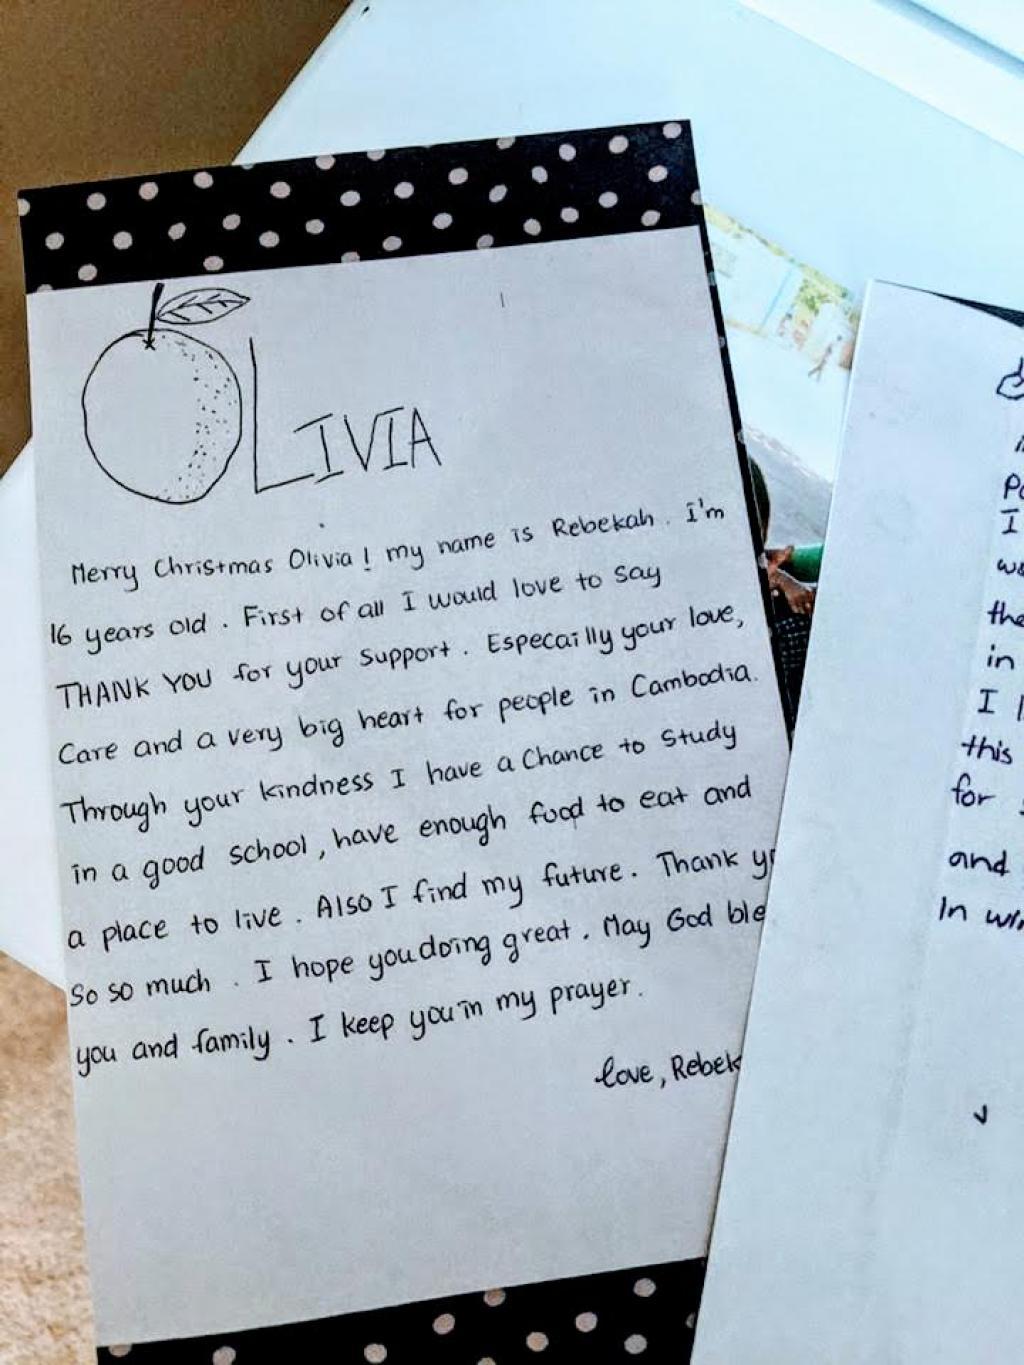 OLIVIA
Merry Christmas Olivia! my name is Rebekah. I'm
16 years old. First of all I would love to say
THANK YOU for your support. Especailly your love,
Care and a very big heart for people in Cambodia.
Through your kindness I have a Chance to study
in a good school, have enough food to eat and
a place to live. Also I find my future. Thank
So so much. I hope you doing great. May God
you and family. I keep you in my prayer.
love, Rebek
I
the
in
I
this
for
and
In